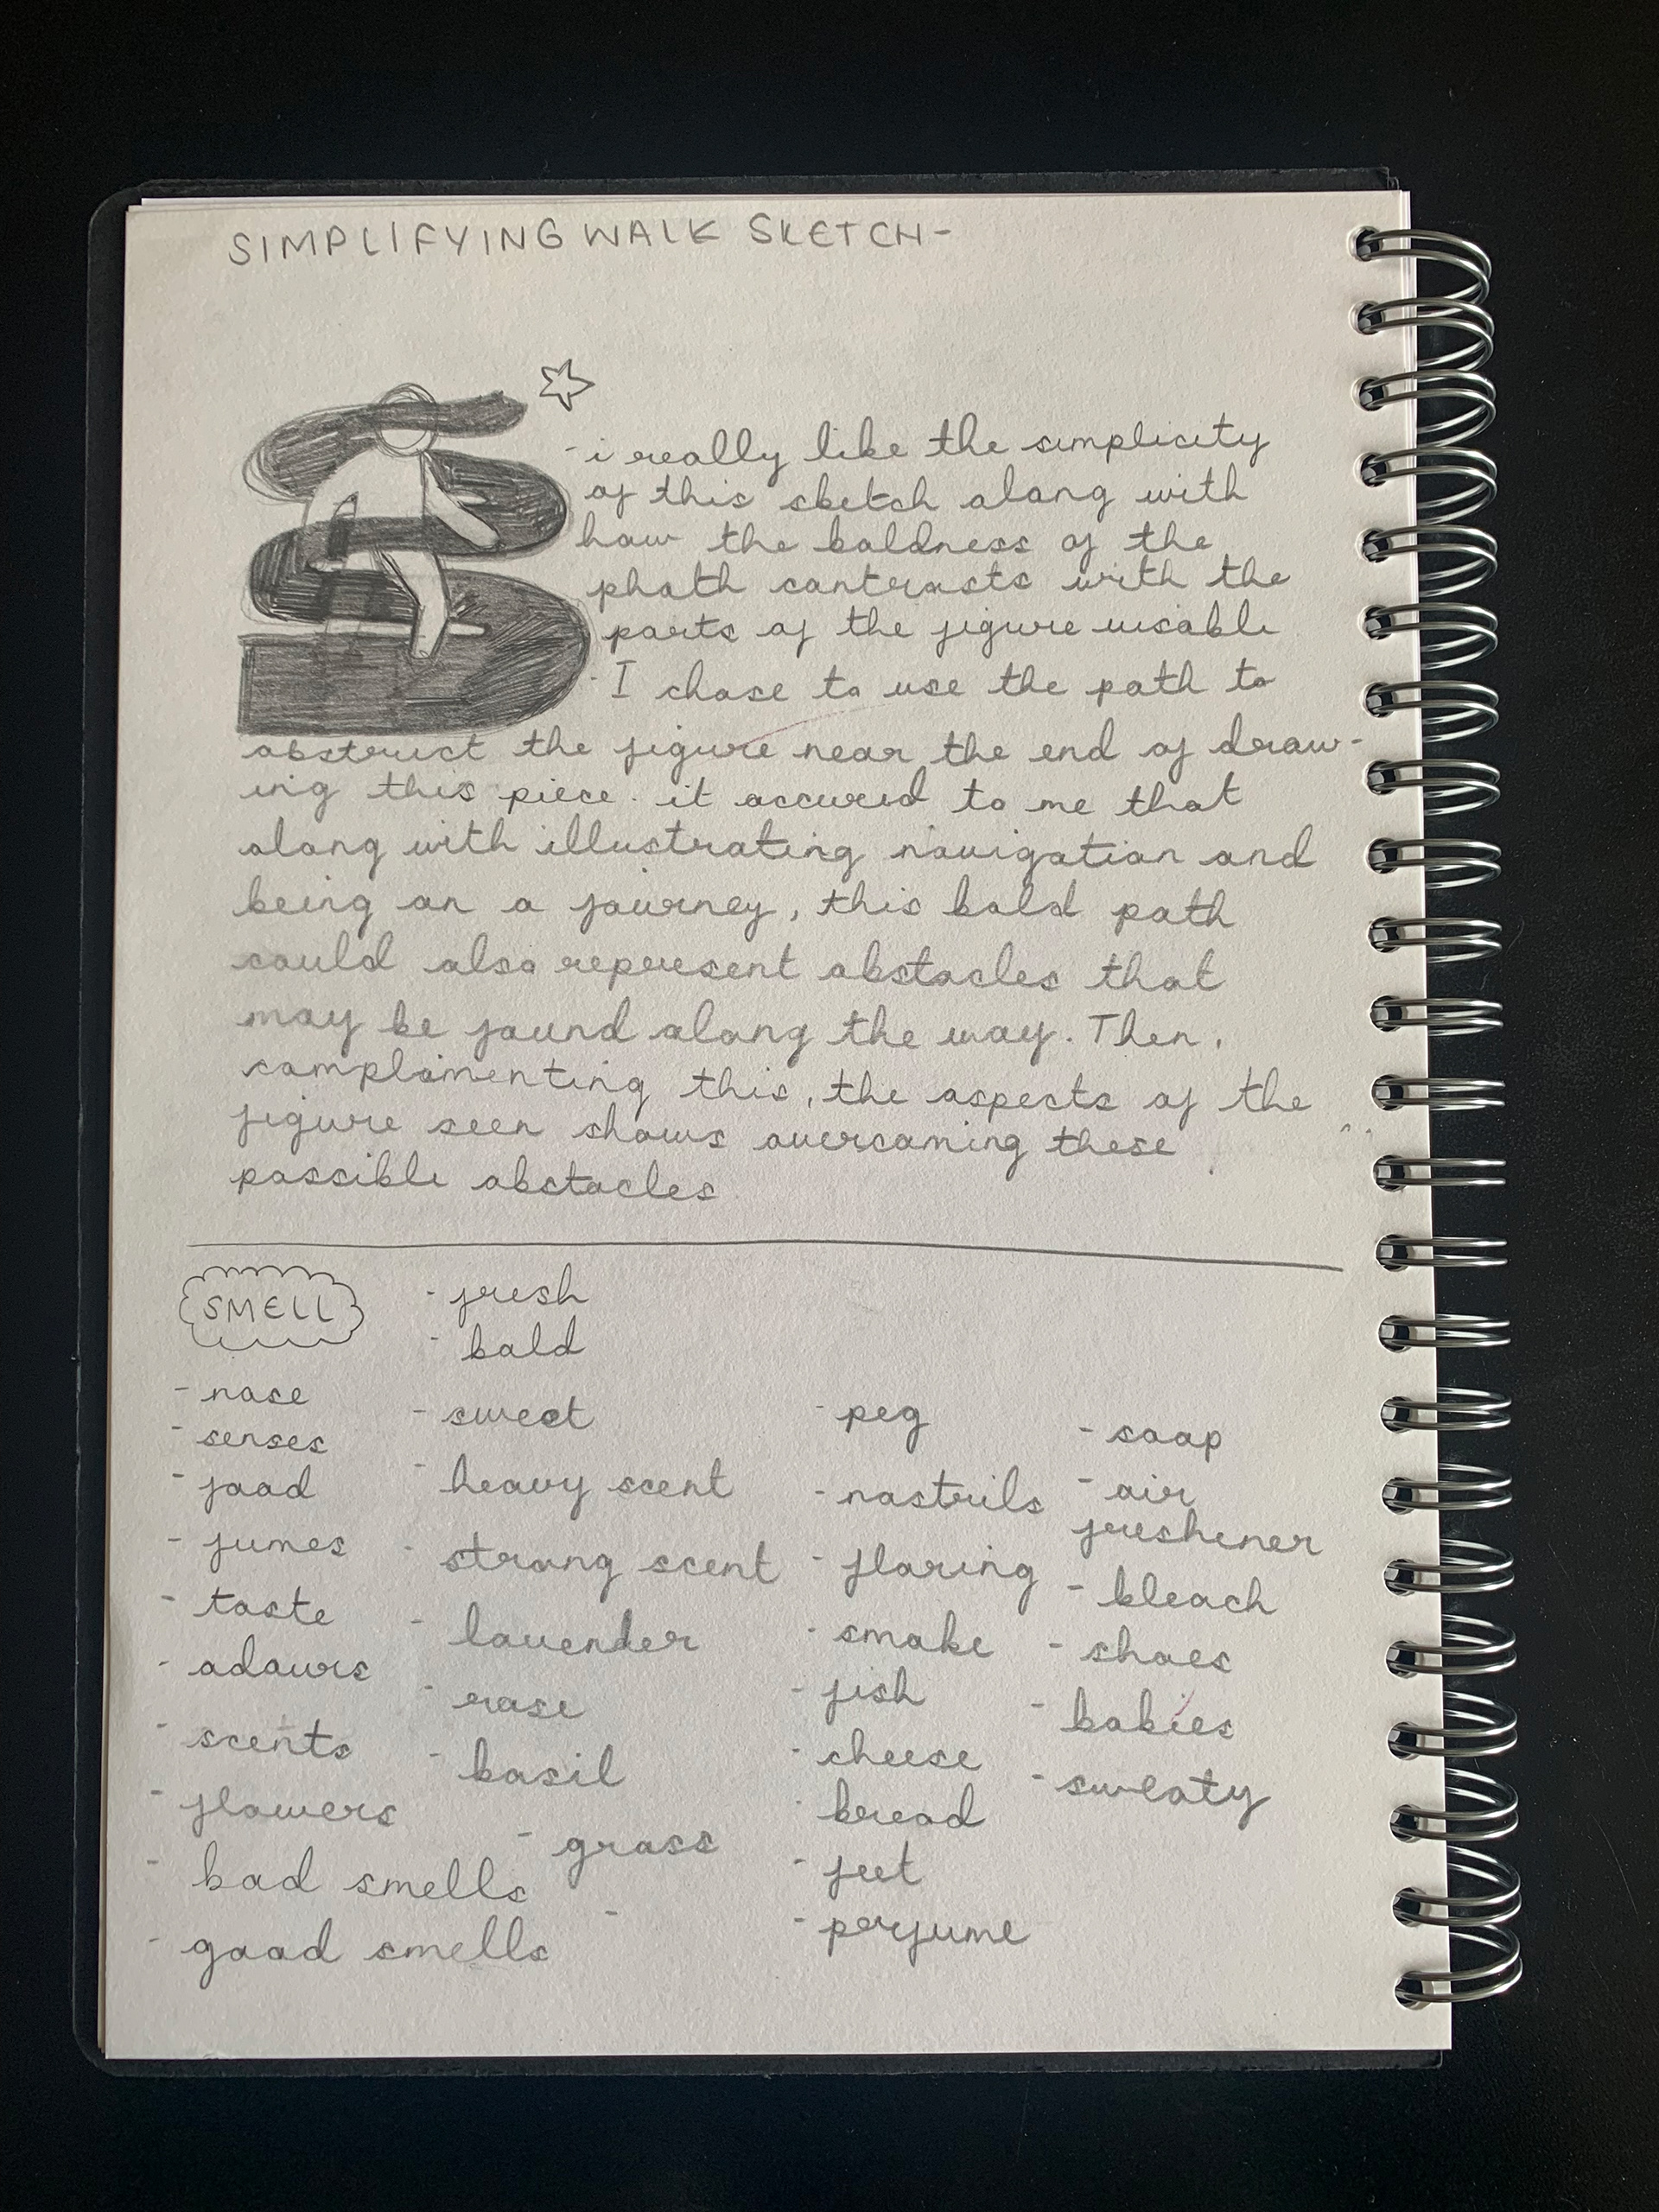 SIMPLIFYING WALK SKETCH-
- i really like the simplicity
of this sketch along with
how the boldness of the
phath contrasts with the
parts of the figure visable
- I chose to use the path to
obstruct the figure near the end of draw-
ing this piece. it occured to me that
along with illustrating navigation and
being on a journey, this bold path
could also represent obstacles that
may be found along the way. Then,
complimenting this, the aspects of the
figure seen shows overcoming these
possible obstacles
SMELL
- nose
- senses
- food
- fumes
- taste
- odours
- scents
- flowers
- bad smells
- good smells
- fresh
- bold
- sweet
- heavy scent
- strong scent
- lavender
- rose
- basil
- grass
-
- peg
- nostrils
- flaring
- smoke
- fish
- cheese
- bread
- feet
- perfume
- soap
- air
freshener
- bleach
- shoes
- babies
- sweaty